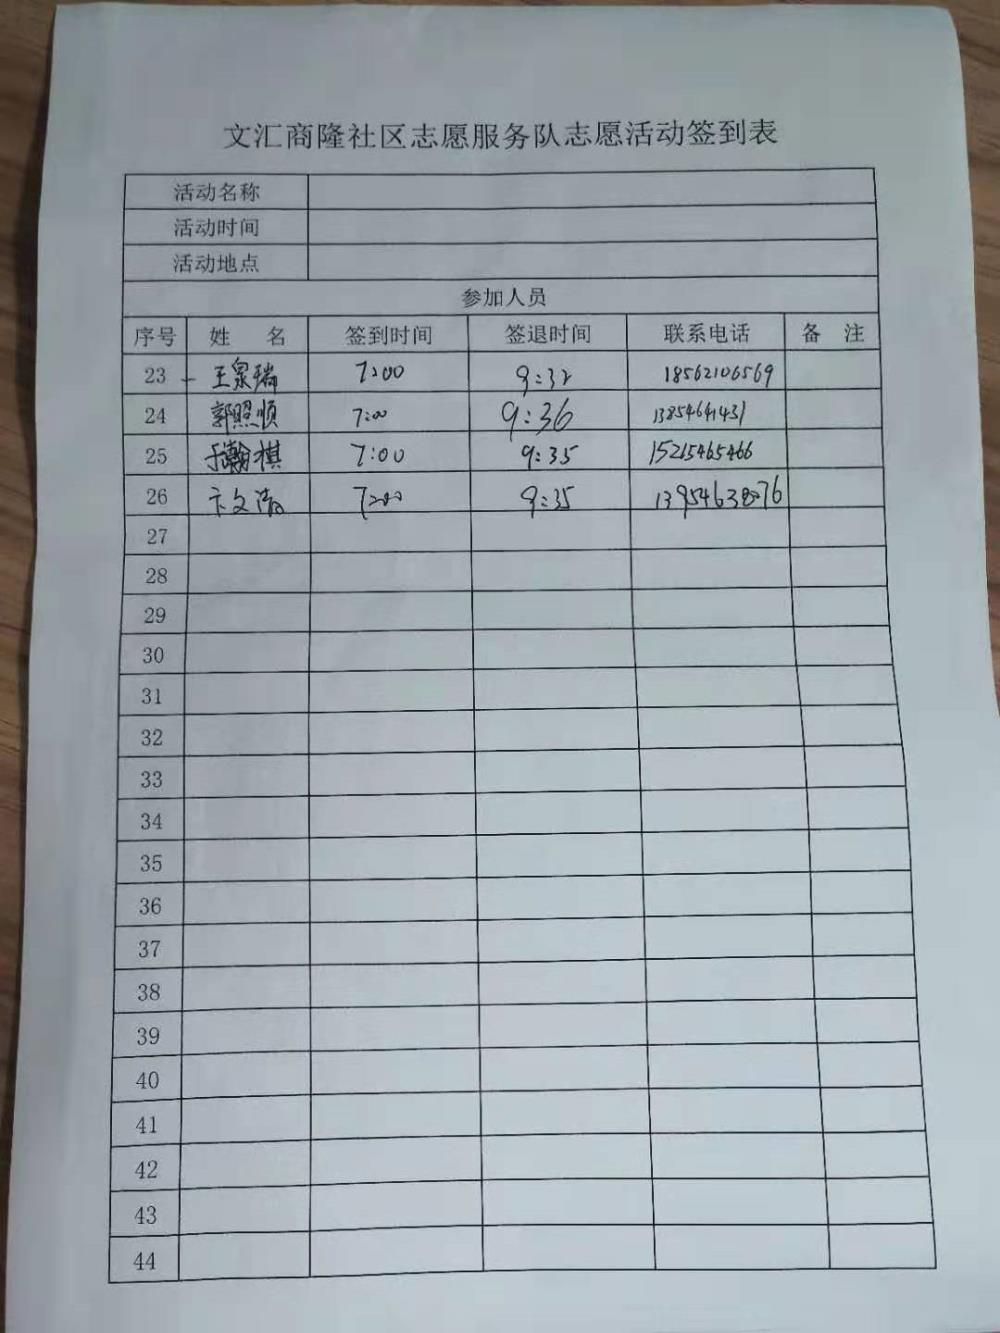 文汇商隆社区志愿服务队志愿活动签到表
活动名称
活动时间
活动地点
参加人员
序号 姓 名 签到时间 签退时间 联系电话 备 注
23 王泉瑞 7:00 9:32 18562106569
24 郭照顺 7:00 9:36
25 于瀚棋 7:00 9:35 15215465466
26 卞文浩 7:00 9:35 13954638076
27
28
29
30
31
32
33
34
35
36
37
38
39
40
41
42
43
44